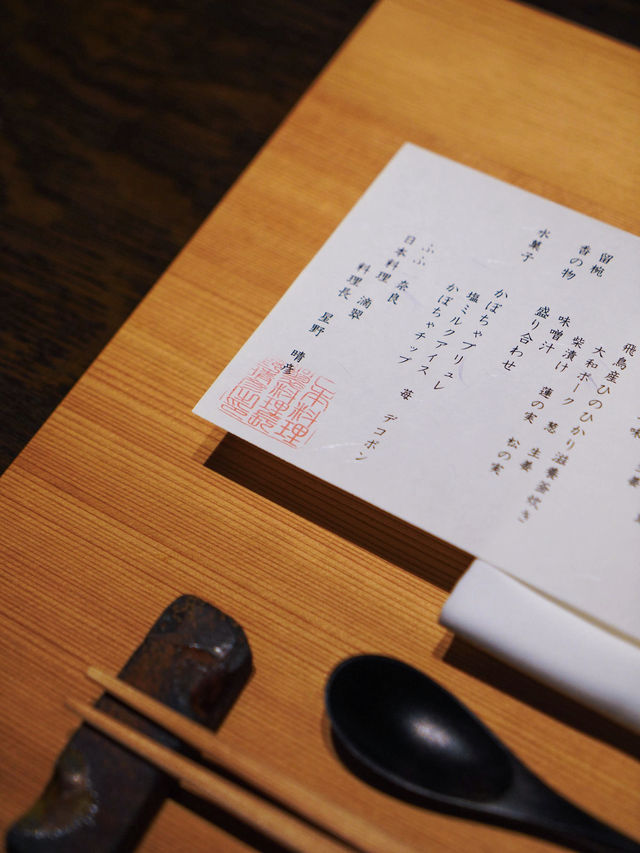 飛鳥産ひのひかり滋養釜炊き
留椀 味噌汁
大和ポーク 葱 生姜
香の物 盛り合わせ
柴漬け 蓮の実 松の実
水菓子 かぼちゃブリュレ
塩ミルクアイス
かぼちゃチップ 苺 デコポン
ふふ 奈良
日本料理 滴翠
料理長 星野 晴彦